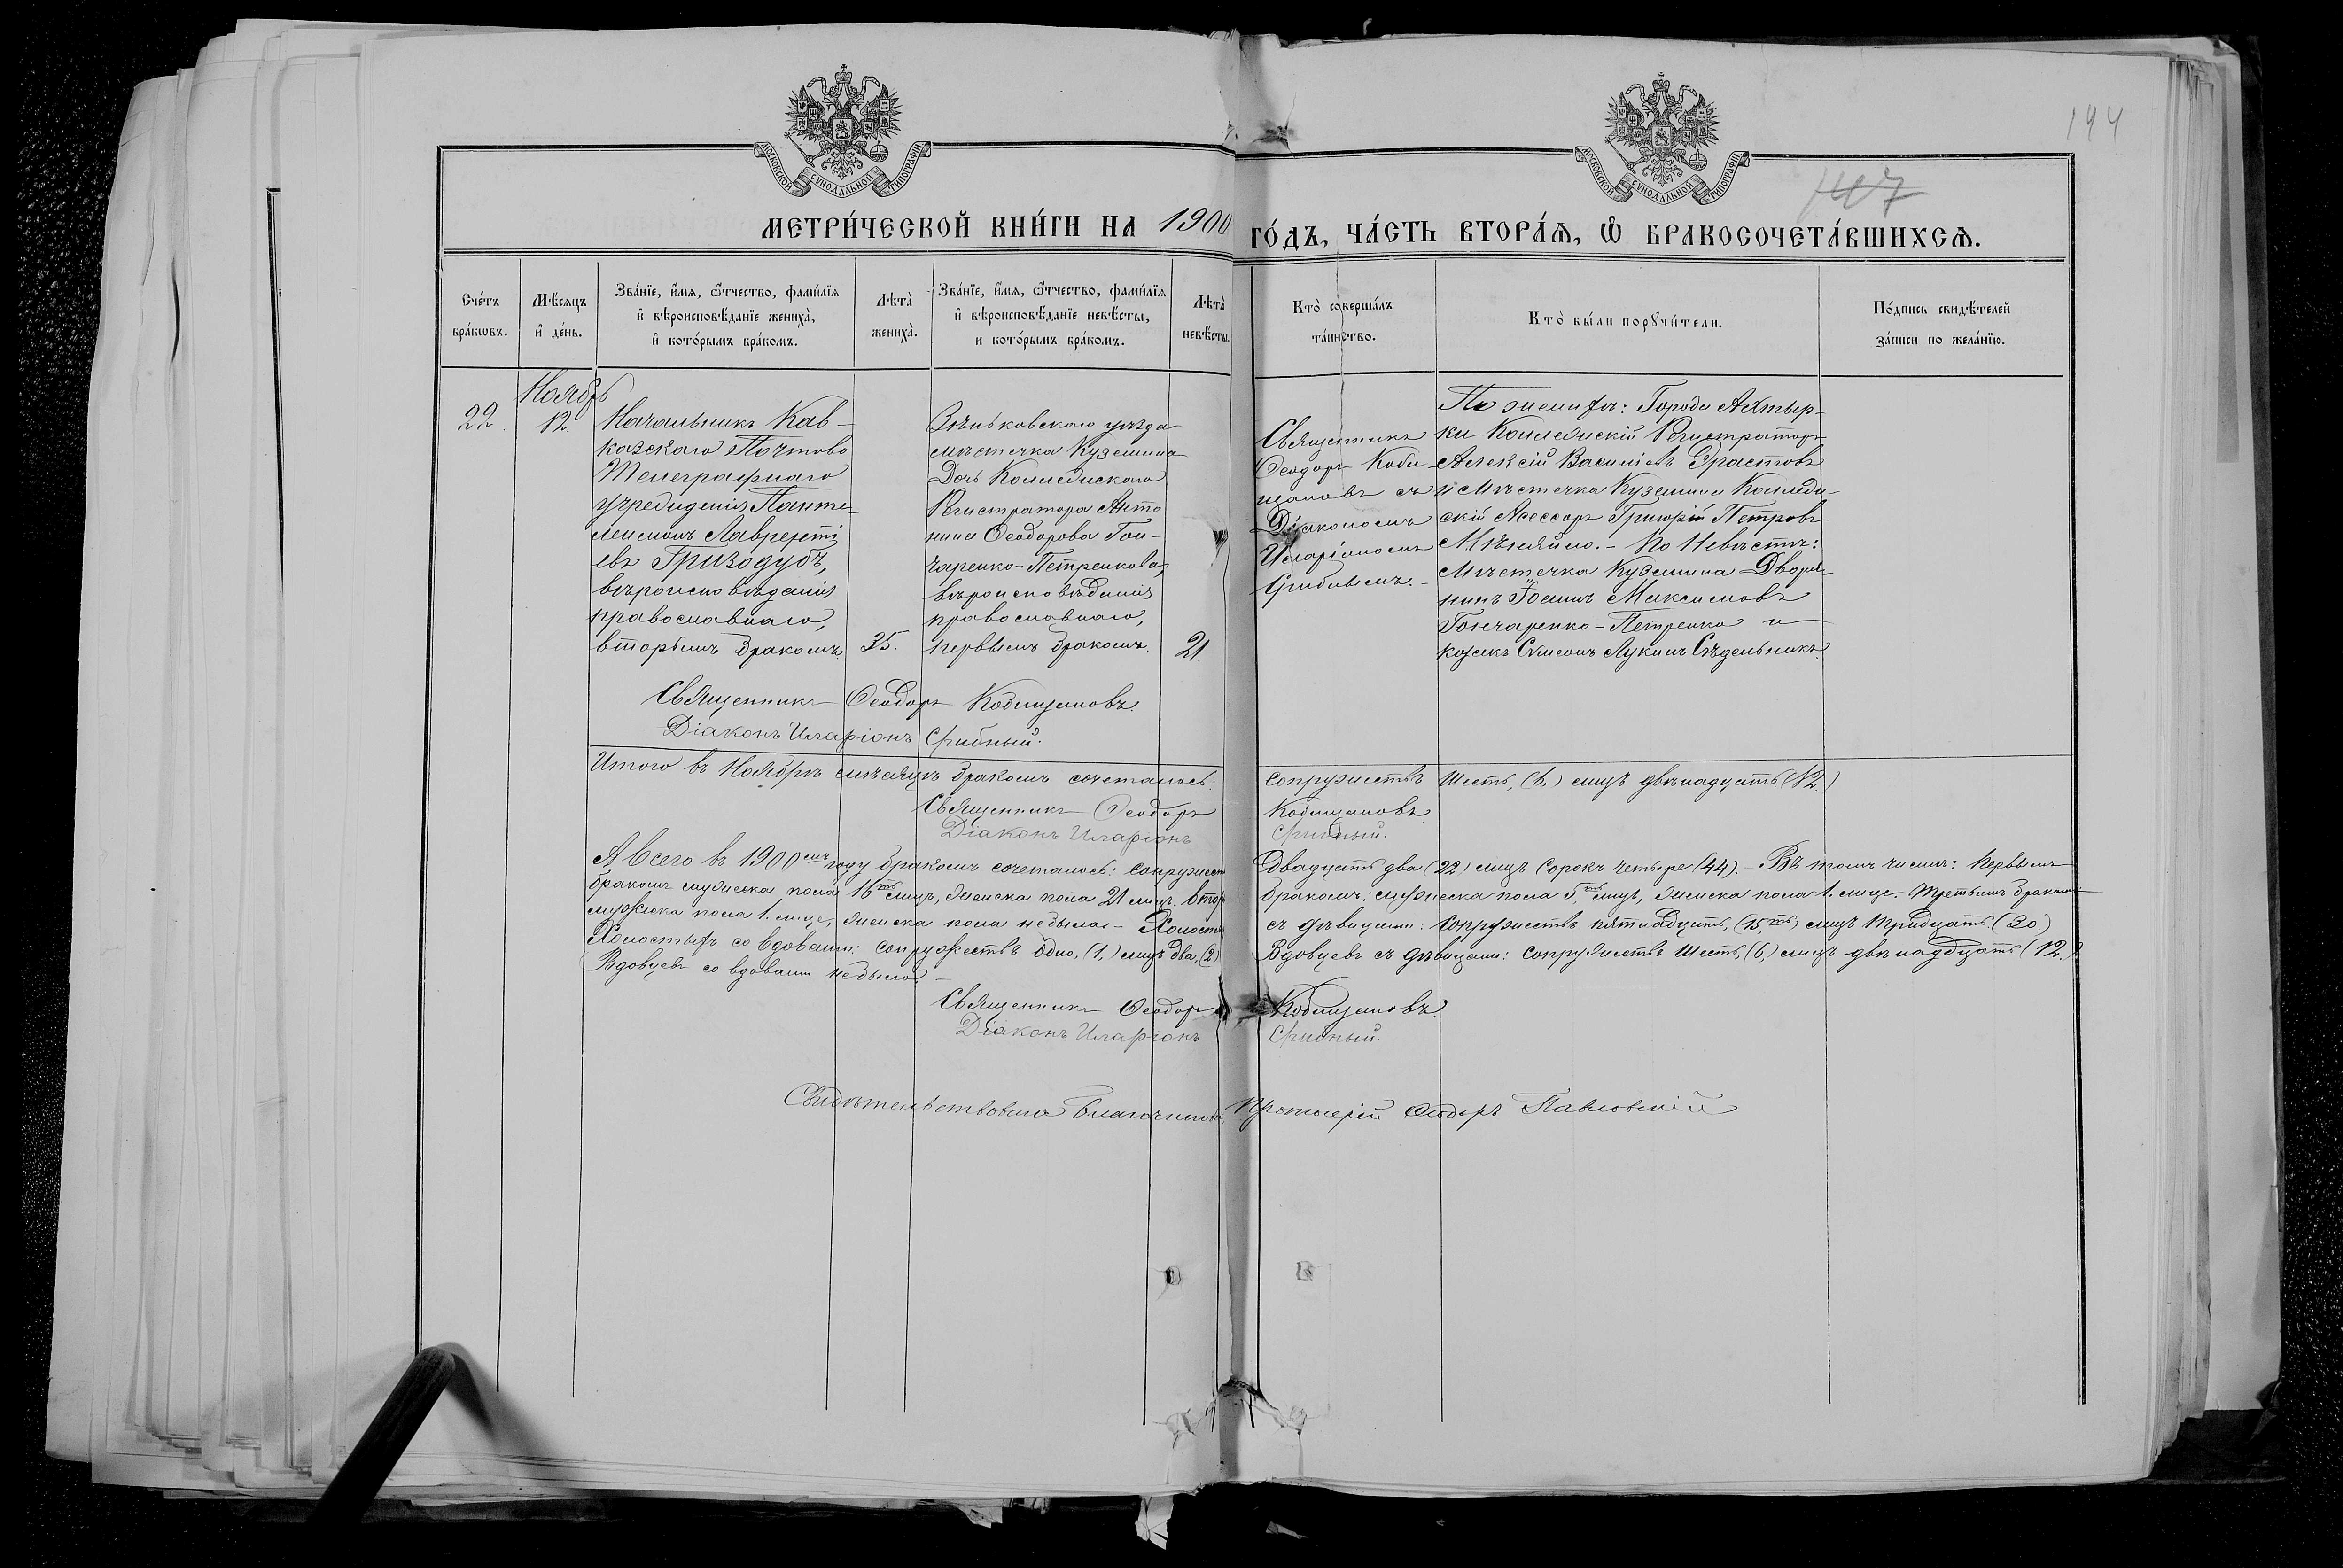 144
147
МОСКОВСКОЙ СУНОДАЛЬНОЙ ТИПОГРАФІИ
МОСКОВСКОЙ СУНОДАЛЬНОЙ ТИПОГРАФІИ
МЕТРИ́ЧЕСКОЙ КНИ́ГИ НА 1900 ГО́ДЪ, ЧА́СТЬ ВТОРА́Ѧ, Ѽ БРАКОСОЧЕТА́ВШИХСѦ.
Сче́тъ
бра́кωвъ.
Мѣ́сѧцъ
и҆ де́нь.
Зва́нїе, и҆́мѧ, ѻ҆́тчество, фами́лїѧ
и҆ вѣроисповѣ́данїе жениха̀,
и҆ кото́рымъ бра́комъ.
Лѣта̀
жениха̀.
Зва́нїе, и҆́мѧ, ѻ҆́тчество, фами́лїѧ
и҆ вѣроисповѣ́данїе невѣ́сты,
и кото́рымъ бра́комъ.
Лѣта̀
невѣ́сты.
Кто̀ соверша́лъ
та́инство.
Кто̀ бы́ли порꙋчи́тели.
По́дпись свидѣ́телей
за́писи по жела́нїю.
Ноябрь
22.
12.
Начальникъ Кав-
казскаго Почтово
Телеграфнаго
учрежденія Панте-
леимонъ Лавренті
евъ Гризодубъ,
вѣроисповѣданія
православнаго,
вторымъ бракомъ.
35.
Зѣньковскаго уѣзда
мѣстечка Куземина
Дочь Коллежскаго
Регистратора Анто
нина Ѳеодорова Гон-
чаренко-Петренкова,
вѣроисповѣданія
православнаго,
первымъ бракомъ.
21.
Священникъ
Ѳеодоръ Коби
щановъ съ
Діакономъ
Иларіономъ
Срибнымъ.-
По женихѣ: Города Ахтыр-
ки Коллежскій Регистраторъ
Алексій Василіевъ Эрастовъ
и Мѣстечка Куземина Колле-
скій Асессоръ Григорій Петровъ
По Невѣстѣ:
Мѣстечка Куземина Дворя-
нинъ Іоаннъ Максимовъ
Гончаренко-Петренко и
козакъ Симеонъ Лукинъ Сѣдельникъ.
Священникъ Ѳеодоръ Кобищановъ.
Діаконъ Иларіонъ Срибный.
Итого въ Ноябрѣ мѣсяцѣ бракомъ сочеталось: сопружествъ Шесть, (6,) лицъ двѣнадцать. (12.)
Священникъ Ѳеодоръ Кобищановъ
Діаконъ Иларіонъ Срибный.
А всего въ 1900мъ году бракомъ сочеталось: сопружествъ Двадцать два (22) лицъ Сорокъ четыре (44).- Въ томъ числѣ: первымъ
бракомъ мужеска пола 16ть лицъ, женска пола 21 лицъ. Втор бракомъ: мужеска пола 5,ть лицъ, женска пола 1. лице. Третьимъ бракомъ:
мужеска пола 1. лице, женска пола небыло.- Холосты съ дѣвицами: Сопружествъ пятнадцать, (15,ть) лицъ тридцать. (30.)
Холостыхъ со вдовами: сопружествъ одно, (1,) лицъ два, (2) Вдовцевъ съ дѣвицами: сопружествъ Шесть, (6,) лицъ двѣнадцать (12.)
Вдовцевъ со вдовами небыло.-
Священникъ Ѳеодоръ Кобищановъ.
Діаконъ Иларіонъ Срибный.
Свидѣтельствовалъ Благочинный Протоіерей Ѳеодоръ Павловскій